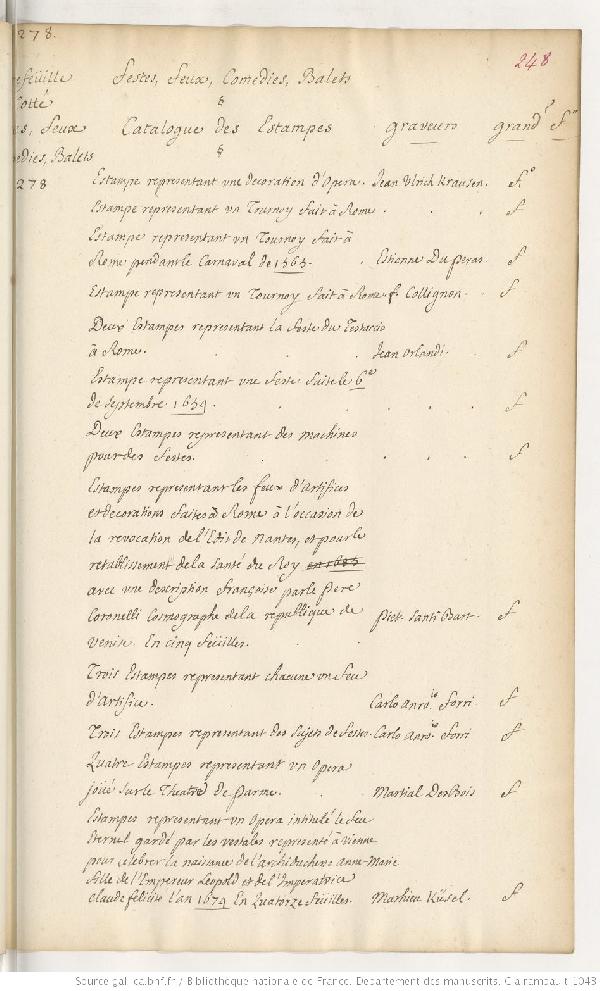 278.
248
efeüille Festes, Feux, Comedies, Balets
Cotté
es, Feux Catalogue des Estampes graveurs grand.r f.o
edies, Balets
278 Estampe representant vne decoration d'Opera. Jean Vlrich Krausen. f.o
Estampe representant vn Tournoy fait à Rome . . . f
Estampe representant vn Tournoy fait à
Rome pendant le Carnaval de 1565. . Estienne Du peras. f
Estampe representant vn Tournoy fait à Rome f. Collignon. . f
Deux Estampes representant la feste du Testacio
à Rome. . . . Jean Orlandi. f
Estampe representant vne feste faite le 6me
de septembre 1659. . . . . f
Deux Estampes representant des machines
pour des festes. . . . f
Estampes representant les feux d'Artifices
et decorations faites à Rome à l'occasion de
la revocation de l'Edit de nantes, et pour le
retablissement de la santé du Roy
avec vne description françoise par le Pere
Coronelli Cosmographe de la republique de Piet. Santi Bart. f
Venise. En cinq feüilles. .
Trois Estampes representant chacune vn feu
d'Artifice. . . Carlo Anto. forri. f
Trois Estampes representant des sujets de festes. Carlo Anto. forri f
Quatre Estampes representant vn Opera
joüé sur le Theatre de Parme. . Martial DesBois f
Estampes representant vn Opera intitulé le feu
Eternel gardé par les vestales representé à Vienne
pour celebrer la naissance de l'archiduchesse Anne-Marie
fille de l'Empereur Leopold et de l'Imperatrice
claude felicité l'an 1674 En Quatorze feüilles. Mathieu Küsel. f
Source gallica.bnf.fr / Bibliothèque nationale de France. Département des manuscrits. Clairambault 1043